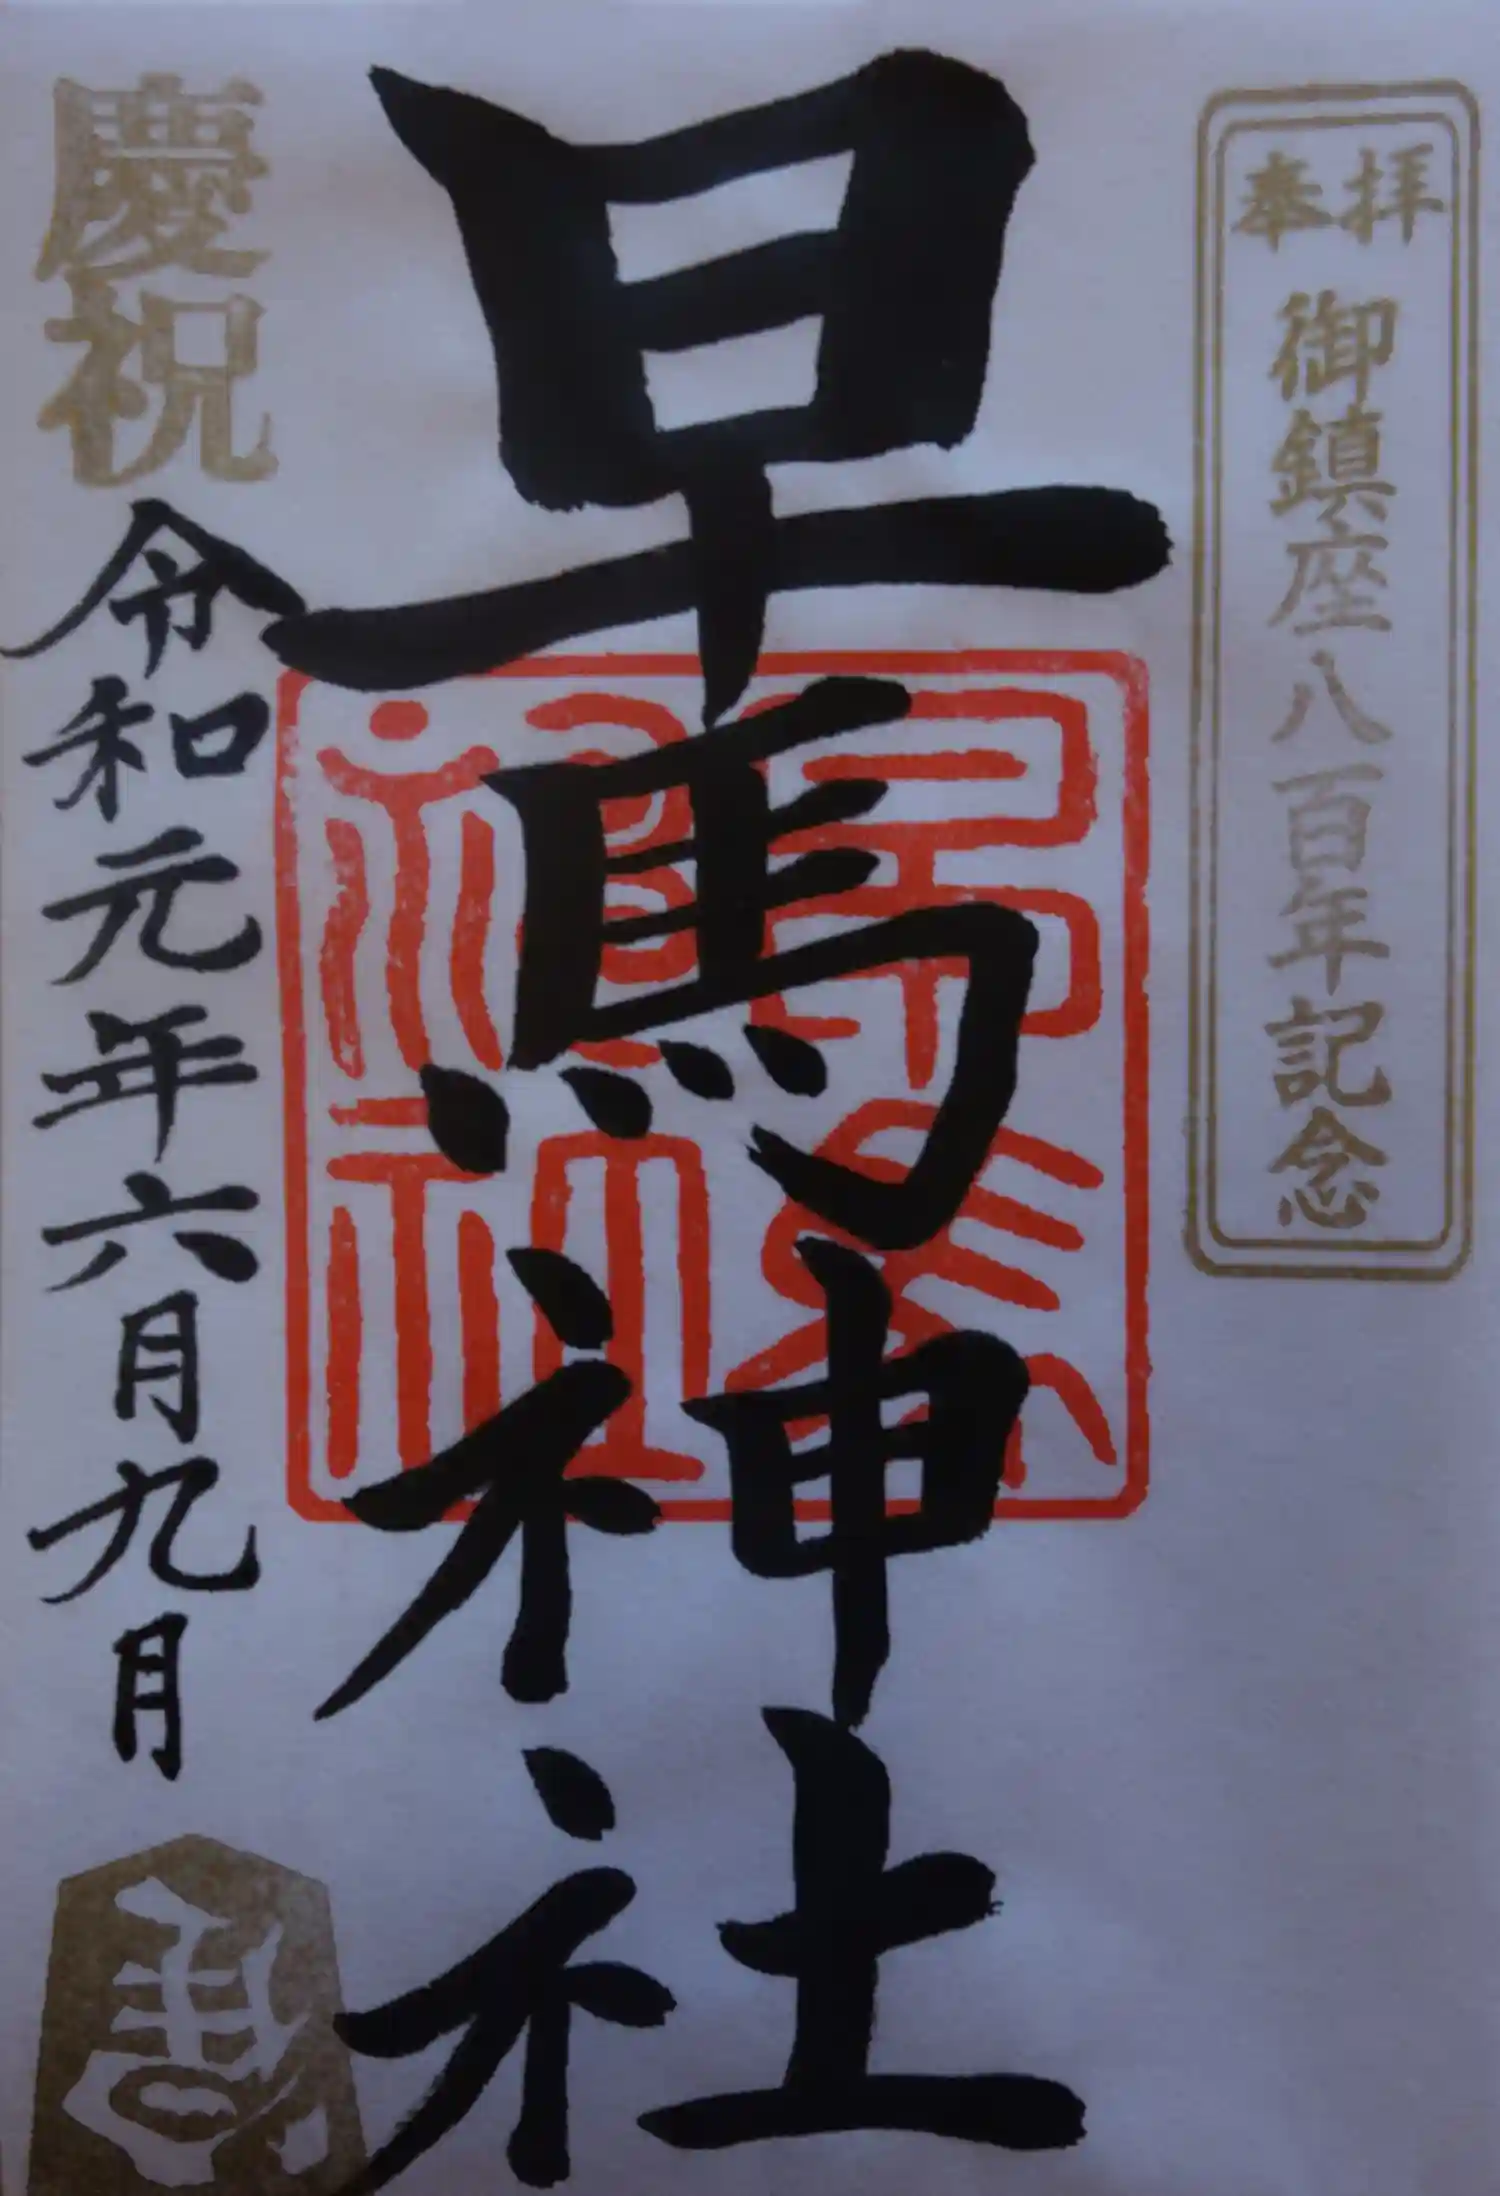 奉拝
御鎮座八百年記念
早馬神社
早馬
神社
慶祝
令和元年六月九月
馬